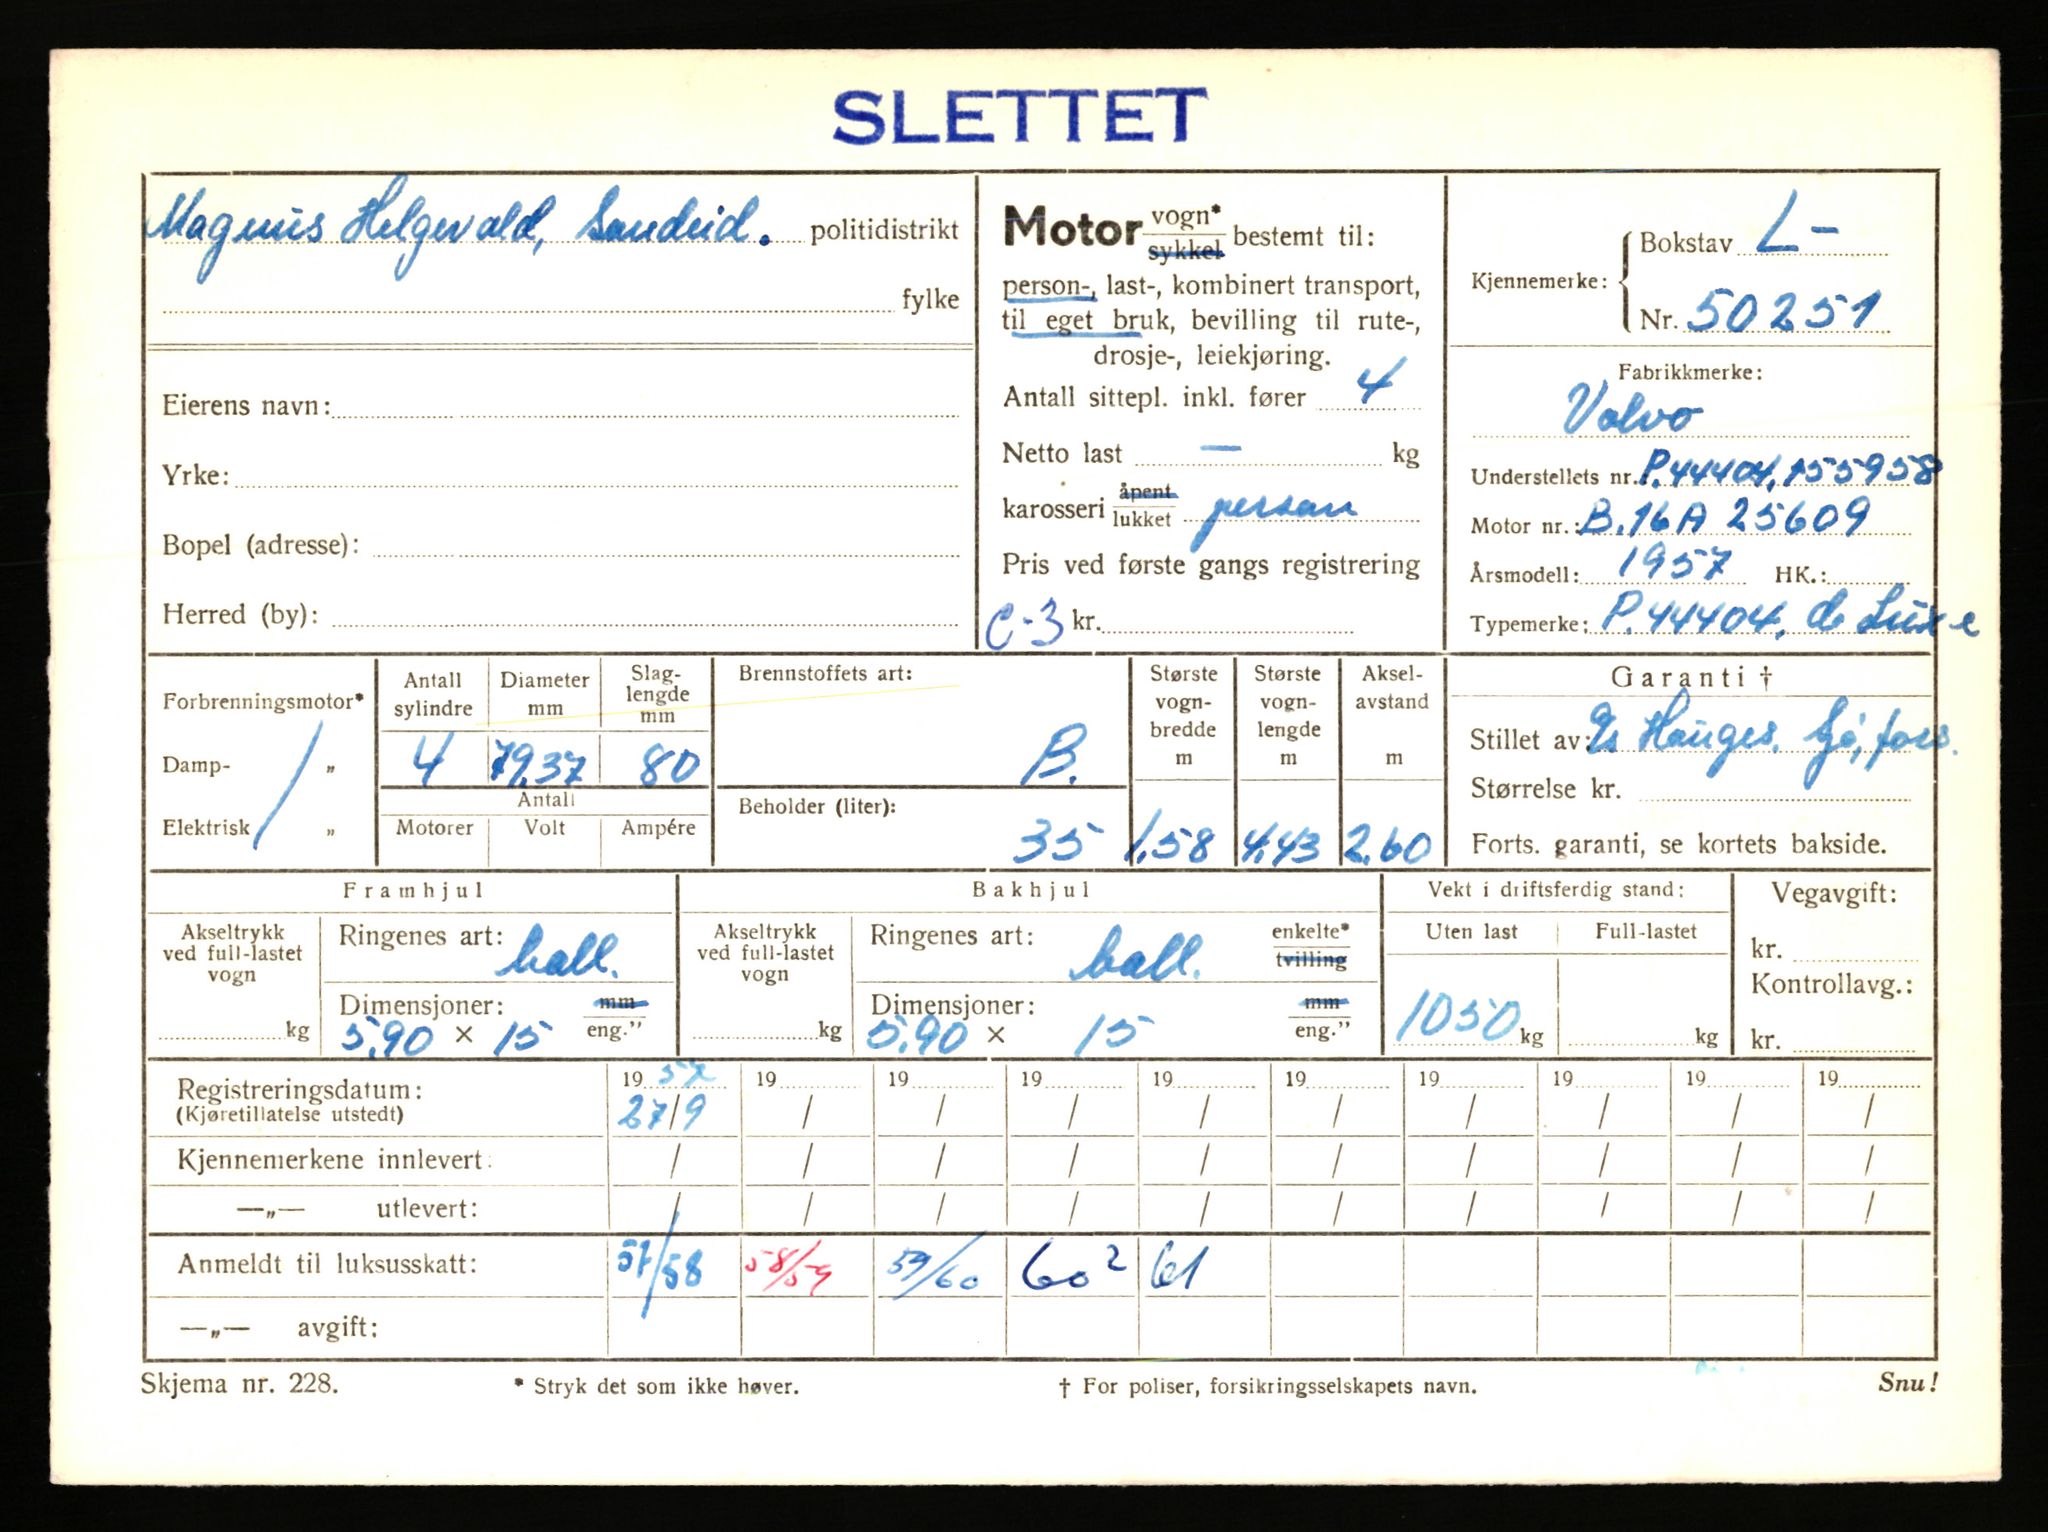 SLETTET
Magnus Helgevold, Sandeid. politidistrikt
fylke
Eierens navn:
Yrke:
Bopel (adresse):
Herred (by):
Motor vogn* sykkel bestemt til:
person-, last-, kombinert transport,
til eget bruk, bevilling til rute-,
drosje-, leiekjøring.
Antall sittepl. inkl. fører 4
Netto last — kg
karosseri åpent lukket person
Pris ved første gangs registrering
C-3 kr.
Kjennemerke: Bokstav L-
Nr. 50251
Fabrikkmerke:
Volvo
Understellets nr. P.44404, 155958
Motor nr.: B.16A 25609
Årsmodell: 1957 HK.:
Typemerke: P.44404, de Luxe
Forbrenningsmotor*
Damp- „
Elektrisk „
Antall sylindre
Diameter mm
Slag-lengde mm
4 79,37 80
Antall
Motorer Volt Ampére
Brennstoffets art:
B.
Beholder (liter):
35
Største vogn-bredde m
1,58
Største vogn-lengde m
4,43
Aksel-avstand m
2,60
Garanti †
Stillet av: Hauges. Gj. fors.
Størrelse kr.
Forts. garanti, se kortets bakside.
Framhjul
Akseltrykk ved full-lastet vogn
kg
Ringenes art: ball.
Dimensjoner: mm
5,90 × 15 eng."
Bakhjul
Akseltrykk ved full-lastet vogn
kg
Ringenes art: ball. enkelte* tvilling
Dimensjoner: mm
5,90 × 15 eng."
Vekt i driftsferdig stand:
Uten last Full-lastet
1050 kg kg
Vegavgift:
kr.
Kontrollavg.:
kr.
Registreringsdatum: 19 57 19 19 19 19 19 19 19 19 19
(Kjøretillatelse utstedt) 27/9 / / / / / / / / /
Kjennemerkene innlevert: / / / / / / / / / /
—„— utlevert: / / / / / / / / / /
Anmeldt til luksusskatt: 57/58 58/59 59/60 60² 61
—„— avgift:
Skjema nr. 228. * Stryk det som ikke høver. † For poliser, forsikringsselskapets navn. Snu!